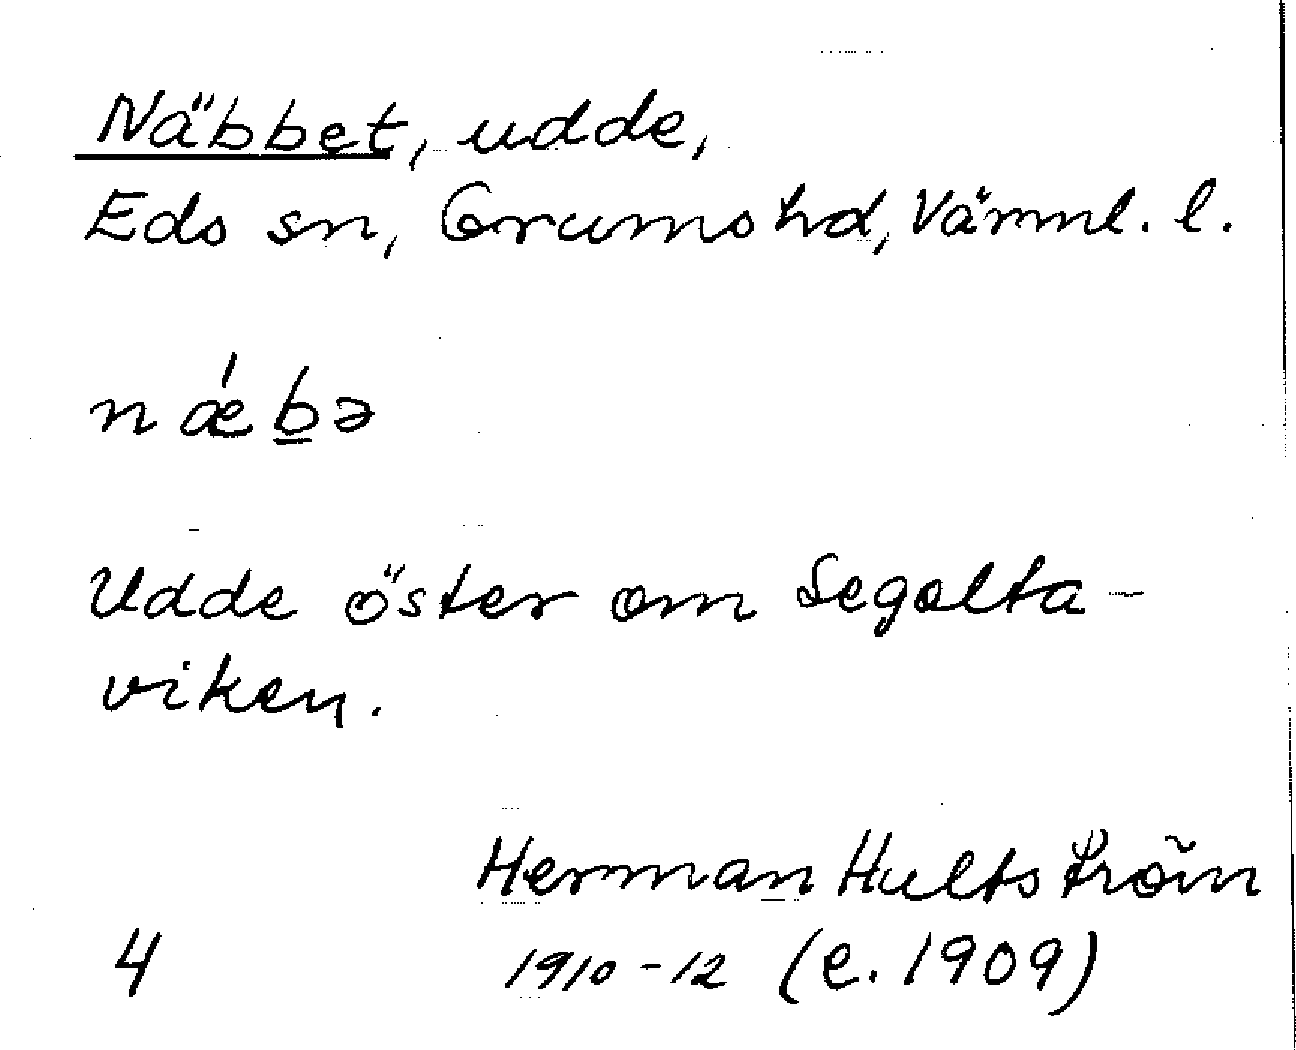 Näbbet, udde,
Eds sn, Grums hd, Värml. l.
nǽb̲ə
Udde öster om Segolta-
viken.
Herman Hultström
4 1910-12 (e. 1909)